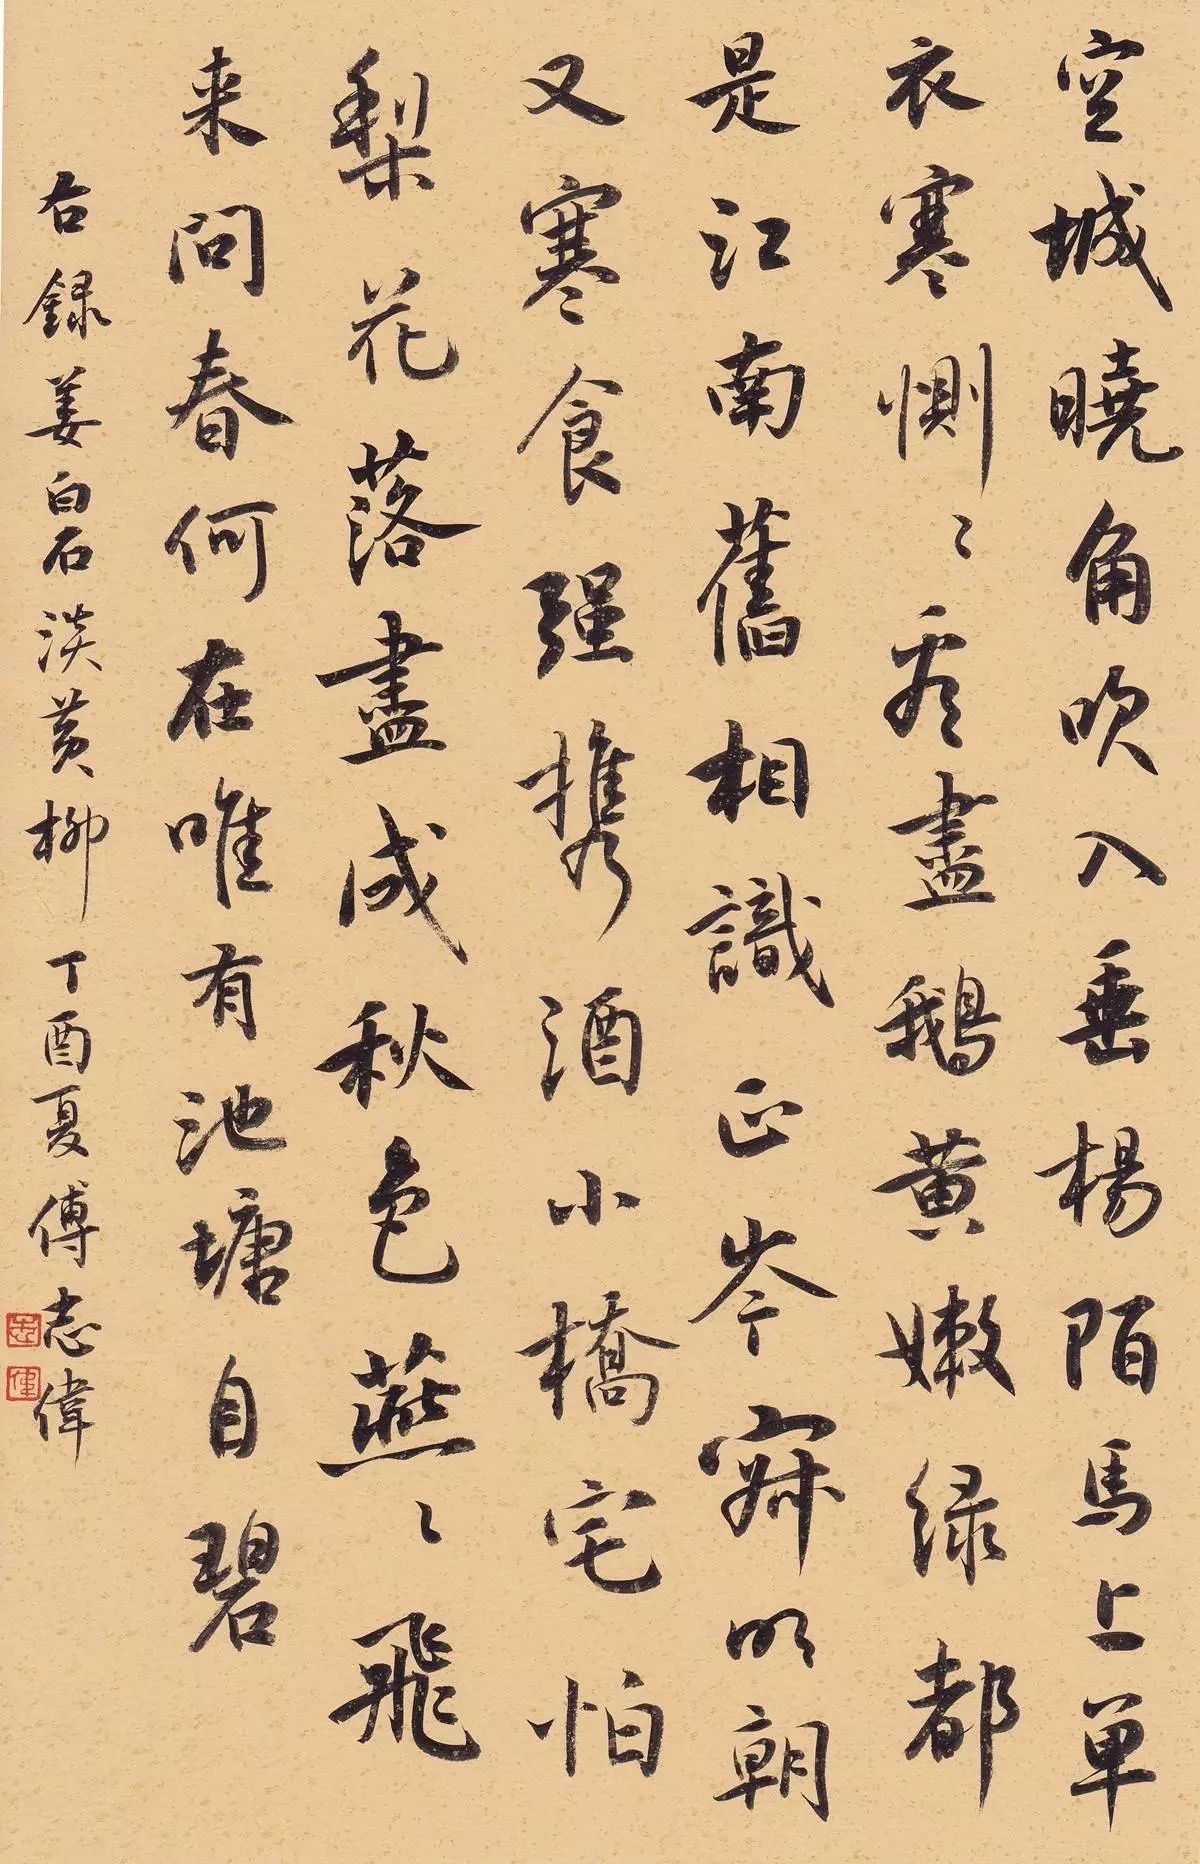 空城曉角吹入垂楊陌馬上単
衣寒惻〻看盡鵝黄嫩绿都
是江南舊相識正岑寂明朝
又寒食强携酒小橋宅怕
梨花落盡成秋色燕〻飛
来问春何在唯有池塘自碧
右録姜白石淡黄柳丁酉夏傅志偉
志
偉